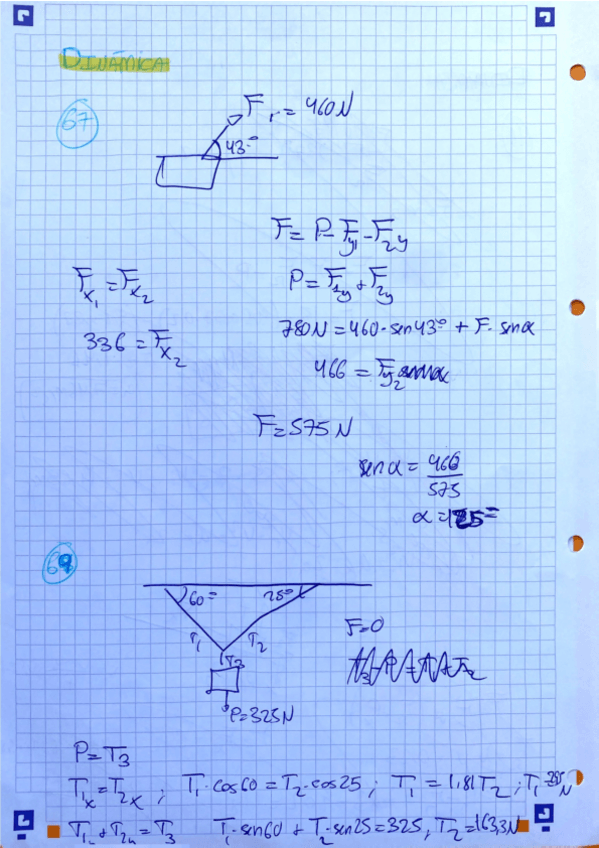 DINÁMICA
67
F₁ = 460N
43°
F = P - Fy₁ - F₂y
Fx₁ = Fx₂
P = F₁y + F₂y
336 = Fx₂
780N = 460·sen43° + F·senα
466 = Fy₂
F = 575 N
senα = 466/575
α =
69
60°
25°
T₁
T₂
T₃
F=0
P=325N
P = T₃
T₁x = T₂x ; T₁·cos60 = T₂·cos25 ; T₁ = 1,81T₂ ; T₁
T₁y + T₂y = T₃ T₁·sen60 + T₂·sen25 = 325, T₂ = 163,3N